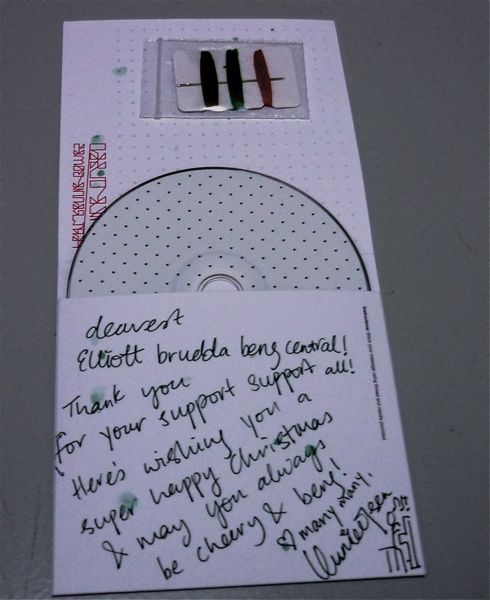 dearest
Elliott brudda beng central!
Thank you
for your support support all!
Here's wishing you a
super happy Christmas
& may you always
be cheery & beng!
♡ many many,